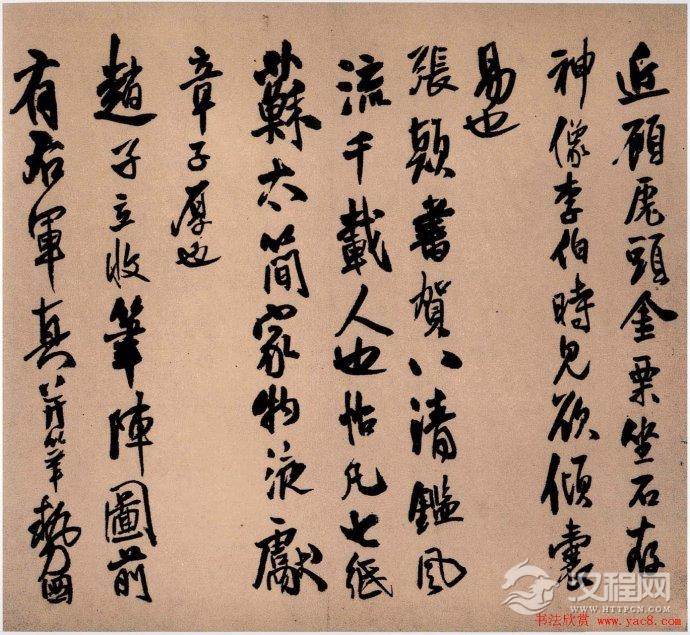 近顧虎頭金粟坐石存
神像李伯時見欲傾囊
易也
張顛書賀八清鑑風
流千載人也帖凡七紙
蘇太簡家物液獻
章子厚也
趙子立收筆陣圖前
有右軍真并筆勢圖
汉程网
WWW.HTTPCN.COM
书法欣赏 www.yac8.com